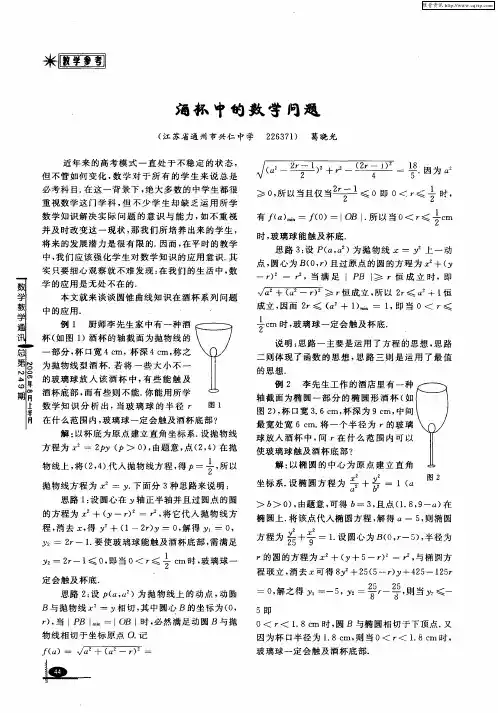 维普资讯 http://www.cqvip.com
教学参考
酒杯中的数学问题
(江苏省通州市兴仁中学 226371) 葛晓光
近年来的高考模式一直处于不稳定的状态,
但不管如何变化,数学对于所有的学生来说总是
必考科目.在这一背景下,绝大多数的中学生都很
重视数学这门学科,但不少学生却缺乏运用所学
数学知识解决实际问题的意识与能力,如不重视
并及时改变这一现状,那我们所培养出来的学生,
将来的发展潜力是很有限的.因而,在平时的教学
中,我们应该强化学生对数学知识的应用意识.其
实只要细心观察就不难发现:在我们的生活中,数
学的应用是无处不在的.
本文就来谈谈圆锥曲线知识在酒杯系列问题
中的应用.
例1 厨师李先生家中有一种酒
杯(如图1)酒杯的轴截面为抛物线的
一部分,杯口宽4 cm,杯深4 cm,称之
为抛物线型酒杯.若将一些大小不一
的玻璃球放入该酒杯中,有些能触及
酒杯底部,而有些则不能.你能用所学
数学知识分析出,当玻璃球的半径 r
图1
在什么范围内,玻璃球一定会触及酒杯底部?
解:以杯底为原点建立直角坐标系.设抛物线
方程为 x² = 2py (p > 0),由题意,点(2,4)在抛
物线上,将(2,4)代入抛物线方程,得 p = 1/2,所以
抛物线方程为 x² = y.下面分3种思路来说明:
思路1:设圆心在 y 轴正半轴并且过圆点的圆
的方程为 x² + (y − r)² = r²,将它代入抛物线方
程,消去 x,得 y² + (1 − 2r)y = 0,解得 y₁ = 0,
y₂ = 2r − 1.要使玻璃球能触及酒杯底部,需满足
y₂ = 2r − 1 ≤ 0,即当 0 < r ≤ 1/2 cm时,玻璃球一
定会触及杯底.
思路2:设 p(a,a²) 为抛物线上的动点,动圆
B与抛物线 x² = y 相切,其中圆心B的坐标为(0,
r),当 | PB |min = | OB | 时,必然满足动圆B与抛
物线相切于坐标原点 O.记
f(a) = √(a² + (a² − r)²) =
√((a² − (2r − 1)/2)² + r² − (2r − 1)²/4) = 18/5.因为 a²
≥ 0,所以当且仅当 (2r − 1)/2 ≤ 0 即 0 < r ≤ 1/2 时,
有 f(a)min = f(0) = | OB |.所以当 0 < r ≤ 1/2 cm
时,玻璃球能触及杯底.
思路3:设 P(a,a²) 为抛物线 x = y² 上一动
点,圆心为B(0,r)且过原点的圆的方程为 x² + (y
− r)² = r²,当满足 | PB | ≥ r 恒成立时,即
√(a² + (a² − r)²) ≥ r 恒成立,所以 2r ≤ a² + 1 恒
成立,因而 2r ≤ (a² + 1)min = 1,即当 0 < r ≤
1/2 cm时,玻璃球一定会触及杯底.
说明:思路一主要是运用了方程的思想,思路
二则体现了函数的思想,思路三则是运用了最值
的思想.
例2 李先生工作的酒店里有一种
轴截面为椭圆一部分的椭圆形酒杯(如
图2),杯口宽3.6 cm,杯深为9 cm,中间
最宽处宽6 cm,将一个半径为 r 的玻璃
球放入酒杯中,问 r 在什么范围内可以
使玻璃球触及酒杯底部?
图2
解:以椭圆的中心为原点建立直角
坐标系.设椭圆方程为 x²/a² + y²/b² = 1 (a
> b > 0),由题意,可得 b = 3,且点(1.8,9 − a)在
椭圆上.将该点代入椭圆方程,解得 a = 5,则椭圆
方程为 y²/25 + x²/9 = 1.设圆心为B(0,r − 5),半径为
r 的圆的方程为 x² + (y + 5 − r)² = r²,与椭圆方
程联立,消去 x 可得 8y² + 25(5 − r)y + 425 − 125r
= 0,解之得 y₁ = −5, y₂ = 25/8 r − 25/8,则当 y₂ ≤ −
5 即
0 < r < 1.8 cm时,圆B与椭圆相切于下顶点.又
因为杯口半径为1.8 cm,则当 0 < r < 1.8 cm时,
玻璃球一定会触及酒杯底部.
数学教学通讯(总第249期)
2006年8月上半月
44